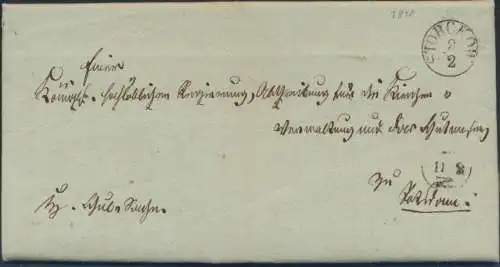 1841
STORCKOW
9
2
Einer
Königl. hochlöblichen Regierung, Abtheilung für die Kirchen
Verwaltung und das Schulwesen
II
zu
Potsdam.